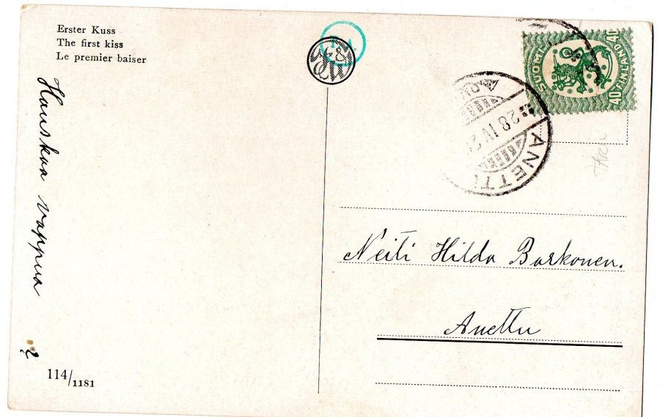 Erster Kuss
The first kiss
Le premier baiser
Hauskaa vappua
114/1181
SUOMI FINLAND
40 40
28 IV 2
ANETTU
Neiti Hilda Barkonen.
Anettu